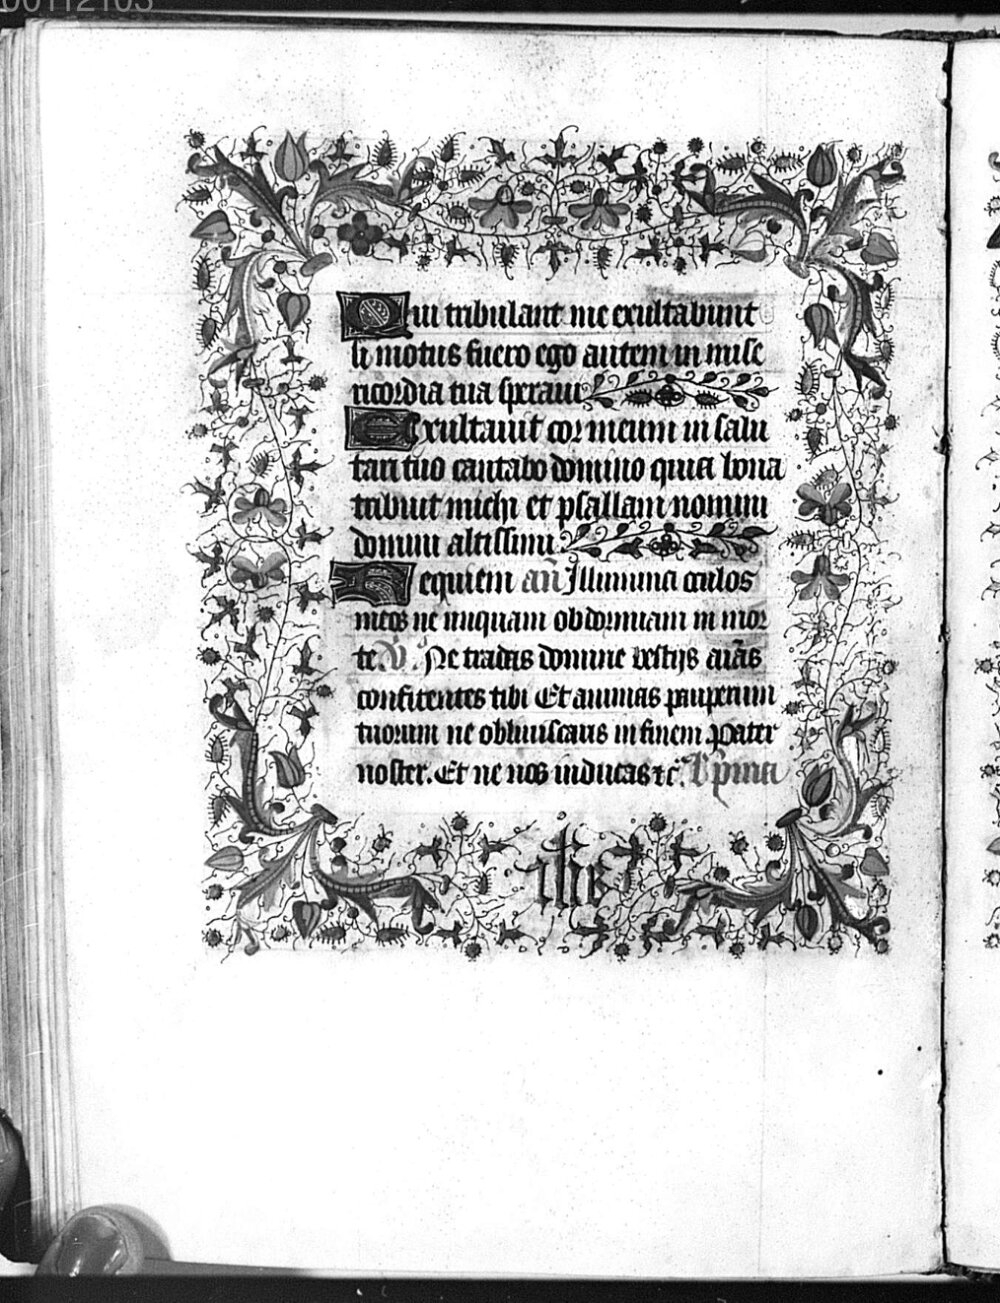 Qui tribulant me exultabunt
si motus fuero ego autem in mise
ricordia tua speraui
Exultauit cor meum in salu
tari tuo cantabo domino qui bona
tribuit michi et psallam nomini
domini altissimi
Requiem añ Illumina oculos
meos ne nuquam obdormiam in mor
te. V̄. Ne tradas domine bestijs aīas
confitentes tibi Et animas pauperum
tuorum ne obliuiscaris in finem. Pater
noster. Et ne nos inducas ⁊c̄. L̄ p̄ima
ihs